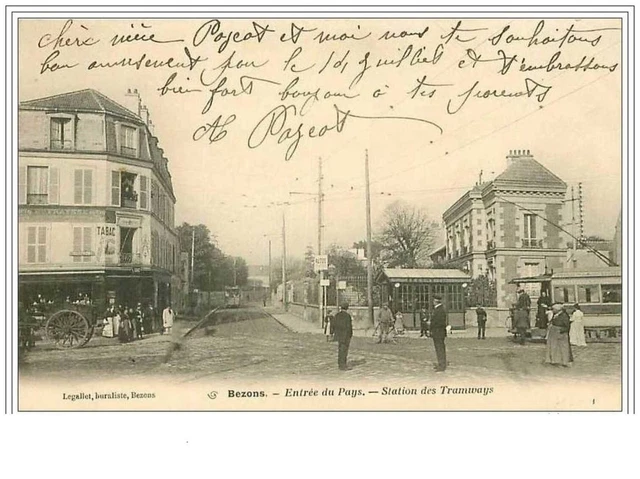 chère nièce Pozzot et moi nous te souhaitons
bon amusement pour le 14 juillet et t'embrassons
bien fort bonjour à tes parents
Pozzot
TABAC
Legallet, buraliste, Bezons
Bezons. - Entrée du Pays. — Station des Tramways
1